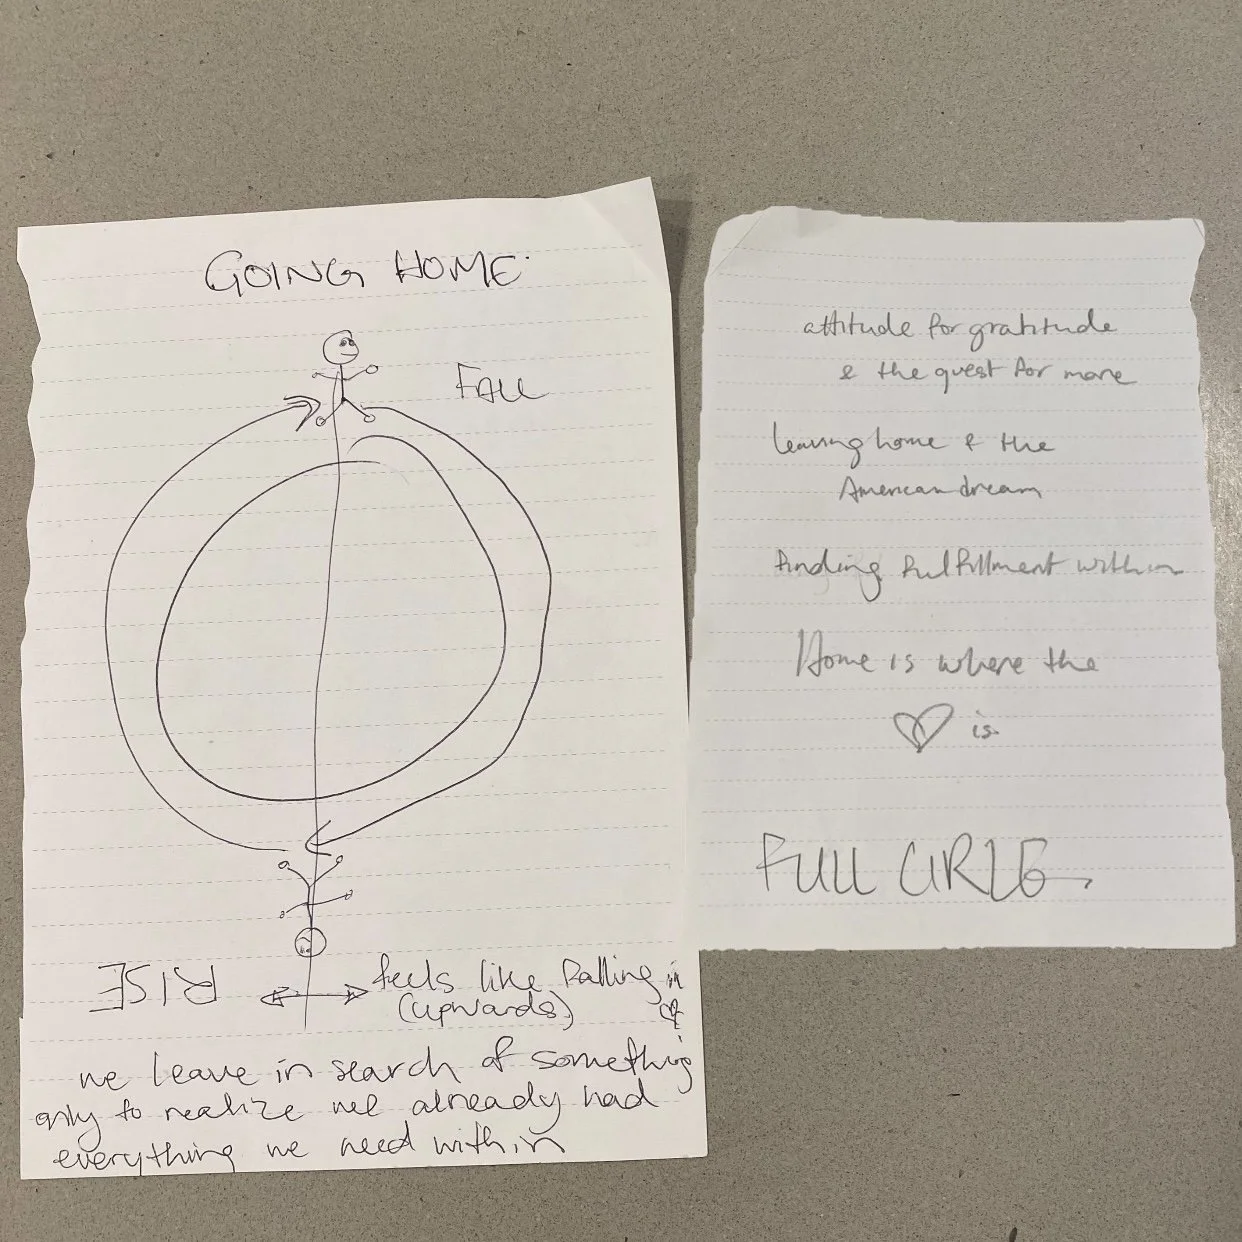 GOING HOME
FALL
RISE
feels like falling in
(upwards)
we leave in search of something
only to realize we already had
everything we need within
attitude for gratitude
& the quest for more
leaving home & the
American dream
finding fulfillment within
Home is where the
is
FULL CIRLE